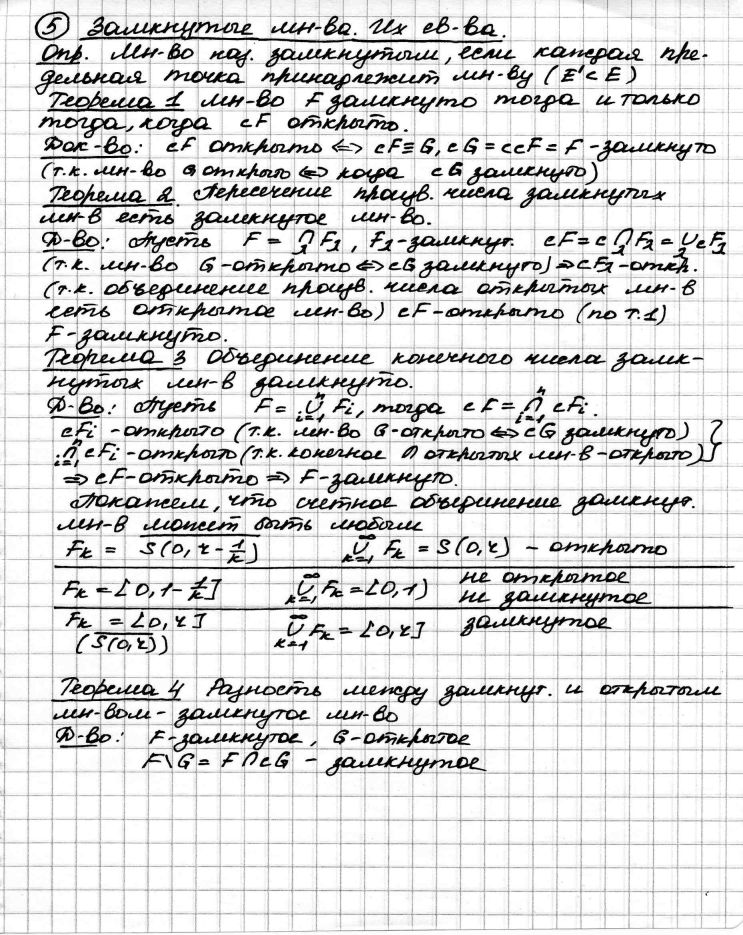 5 Замкнутые мн-ва. Их св-ва.
Опр. Мн-во наз. замкнутым, если каждая пре-
дельная точка принадлежит мн-ву (E'⊂E)
Теорема 1 мн-во F замкнуто тогда и только
тогда, когда cF открыто.
Док-во: cF открыто ⇔ cF≡G, cG = ccF = F - замкнуто
(т.к. мн-во G открыто ⇔ когда cG замкнуто)
Теорема 2. Пересечение произв. числа замкнутых
мн-в есть замкнутое мн-во.
Д-во: Пусть F = ∩_λ F_λ, F_λ-замкнут. cF = c∩_λ F_λ = ∪_λ cF_λ
(т.к. мн-во G-открыто ⇔ cG замкнуто) ⇒ cF_λ-откр.
(т.к. объединение произв. числа открытых мн-в
есть открытое мн-во) cF-открыто (по т.1)
F-замкнуто.
Теорема 3 Объединение конечного числа замк-
нутых мн-в замкнуто.
Д-во: Пусть F = ∪_{i=1}^n F_i, тогда cF = ∩_{i=1}^n cF_i.
cF_i - открыто (т.к. мн-во G-открыто ⇔ cG замкнуто) }
∩_{i=1}^n cF_i-открыто (т.к. конечное ∩ открытых мн-в-открыто) }
⇒ cF-открыто ⇒ F-замкнуто.
Покажем, что счетное объединение замкнут.
мн-в может быть любым
F_k = S̅(0, r - 1/k) ∪_{k=1}^∞ F_k = S(0, r) - открыто
F_k = [0, 1 - 1/k] ∪_{k=1}^∞ F_k = [0, 1) не открытое
не замкнутое
F_k = [0, r] ∪_{k=1}^∞ F_k = [0, r] замкнутое
(S̅(0, r))
Теорема 4 Разность между замкнут. и открытым
мн-вом - замкнутое мн-во
Д-во: F-замкнутое, G-открытое
F\G = F∩cG - замкнутое